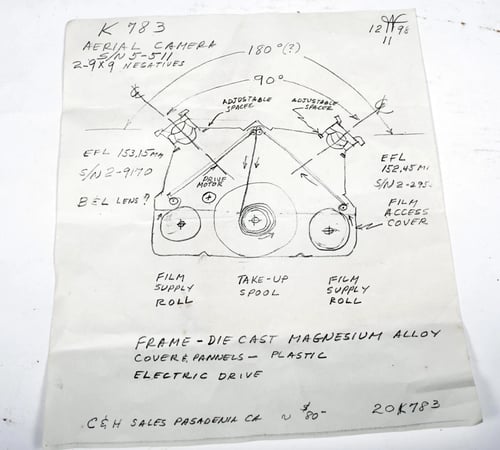 K 783
12 98
11
AERIAL CAMERA
S/N 5-511
2-9X9 NEGATIVES
180°(?)
90°
ADJUSTABLE
SPACER
ADJUSTABLE
SPACER
EFL 153.15MM
S/N 2-9170
B&L LENS?
DRIVE
MOTOR
EFL
152.45M
S/N 2-295
FILM
ACCESS
COVER
FILM
SUPPLY
ROLL
TAKE-UP
SPOOL
FILM
SUPPLY
ROLL
FRAME - DIE CAST MAGNESIUM ALLOY
COVER & PANNELS - PLASTIC
ELECTRIC DRIVE
C&H SALES PASADENIA CA ~ $80-
20K783